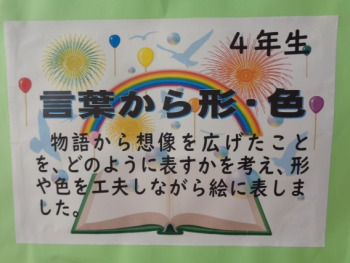 ４年生
言葉から形・色
物語から想像を広げたこと
を、どのように表すかを考え、形
や色を工夫しながら絵に表しま
した。